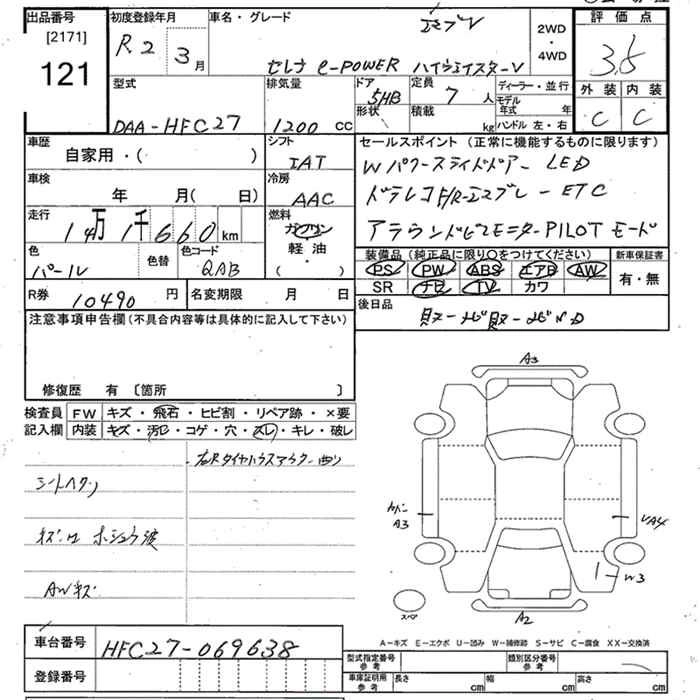 出品番号
[2171]
121
初度登録年月
R2 3月
車名・グレード
セレナ e-POWER ハイウェイスターV
2WD
・
4WD
評価点
3.5
外装 内装
C C
型式
DAA-HFC27
排気量
1200 cc
ドア 5HB
形状
定員 7 人
積載 kg
ディーラー・並行
モデル年式 年
ハンドル 左・右
車歴
自家用・( )
シフト
IAT
車検
年 月( 日)
冷房
AAC
走行
14万1千660km
燃料
ガソリン
軽油
( )
色
パール
色替
色コード
QAB
R券 10490 円
名変期限 月 日
セールスポイント (正常に機能するものに限ります)
Wパワースライドドアー LED
ドラレコF/R-エスプレ-ETC
アラウンドビューモニターPILOTモード
装備品(純正品に限り○をつけてください)
PS PW ABS エアB AW
SR ナビ TV カワ
新車保証書
有・無
後日品
注意事項申告欄(不具合内容等は具体的に記入して下さい)
修復歴 有 〔箇所 〕
検査員
記入欄
FW キズ・飛石・ヒビ割・リペア跡・×要
内装 キズ・汚レ・コゲ・穴・スレ・キレ・破レ
シートヘタリ
AWキズ
A3
カバー
A3
W3
スペア
A2
A-キズ E-エクボ U-凹み W-補修跡 S-サビ C-腐食 XX-交換済
車台番号 HFC27-069638
登録番号
型式指定番号
参考
類別区分番号
参考
車庫証明用
参考
長さ cm 幅 cm 高さ cm